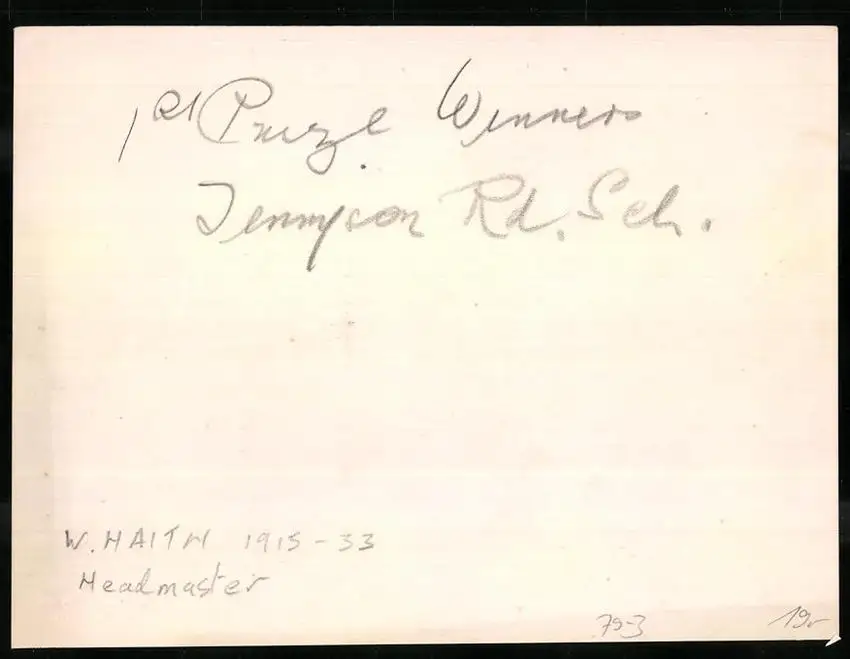 1st Prize Winners
Tennyson Rd. Sch.
W. HAITH 1915-33
Headmaster
79-3